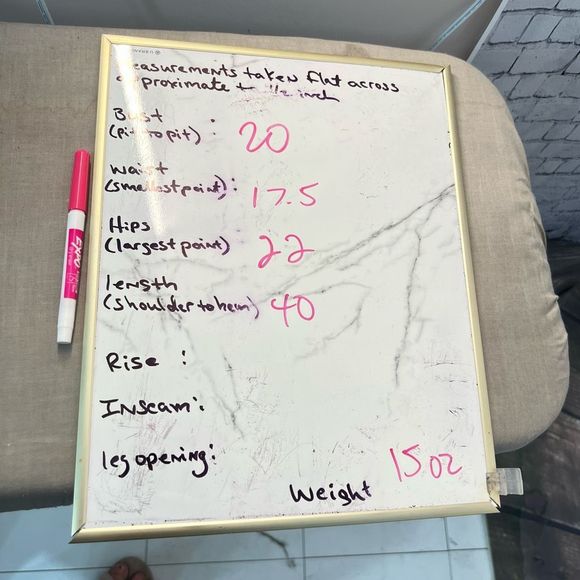 measurements taken flat across
approximate to 1/2 inch
Bust
(pit to pit) : 20
waist
(smallest point) : 17.5
Hips
(largest point) 22
length
(shoulder to hem) 40
Rise :
Inseam :
leg opening :
15 oz
Weight
EXPO